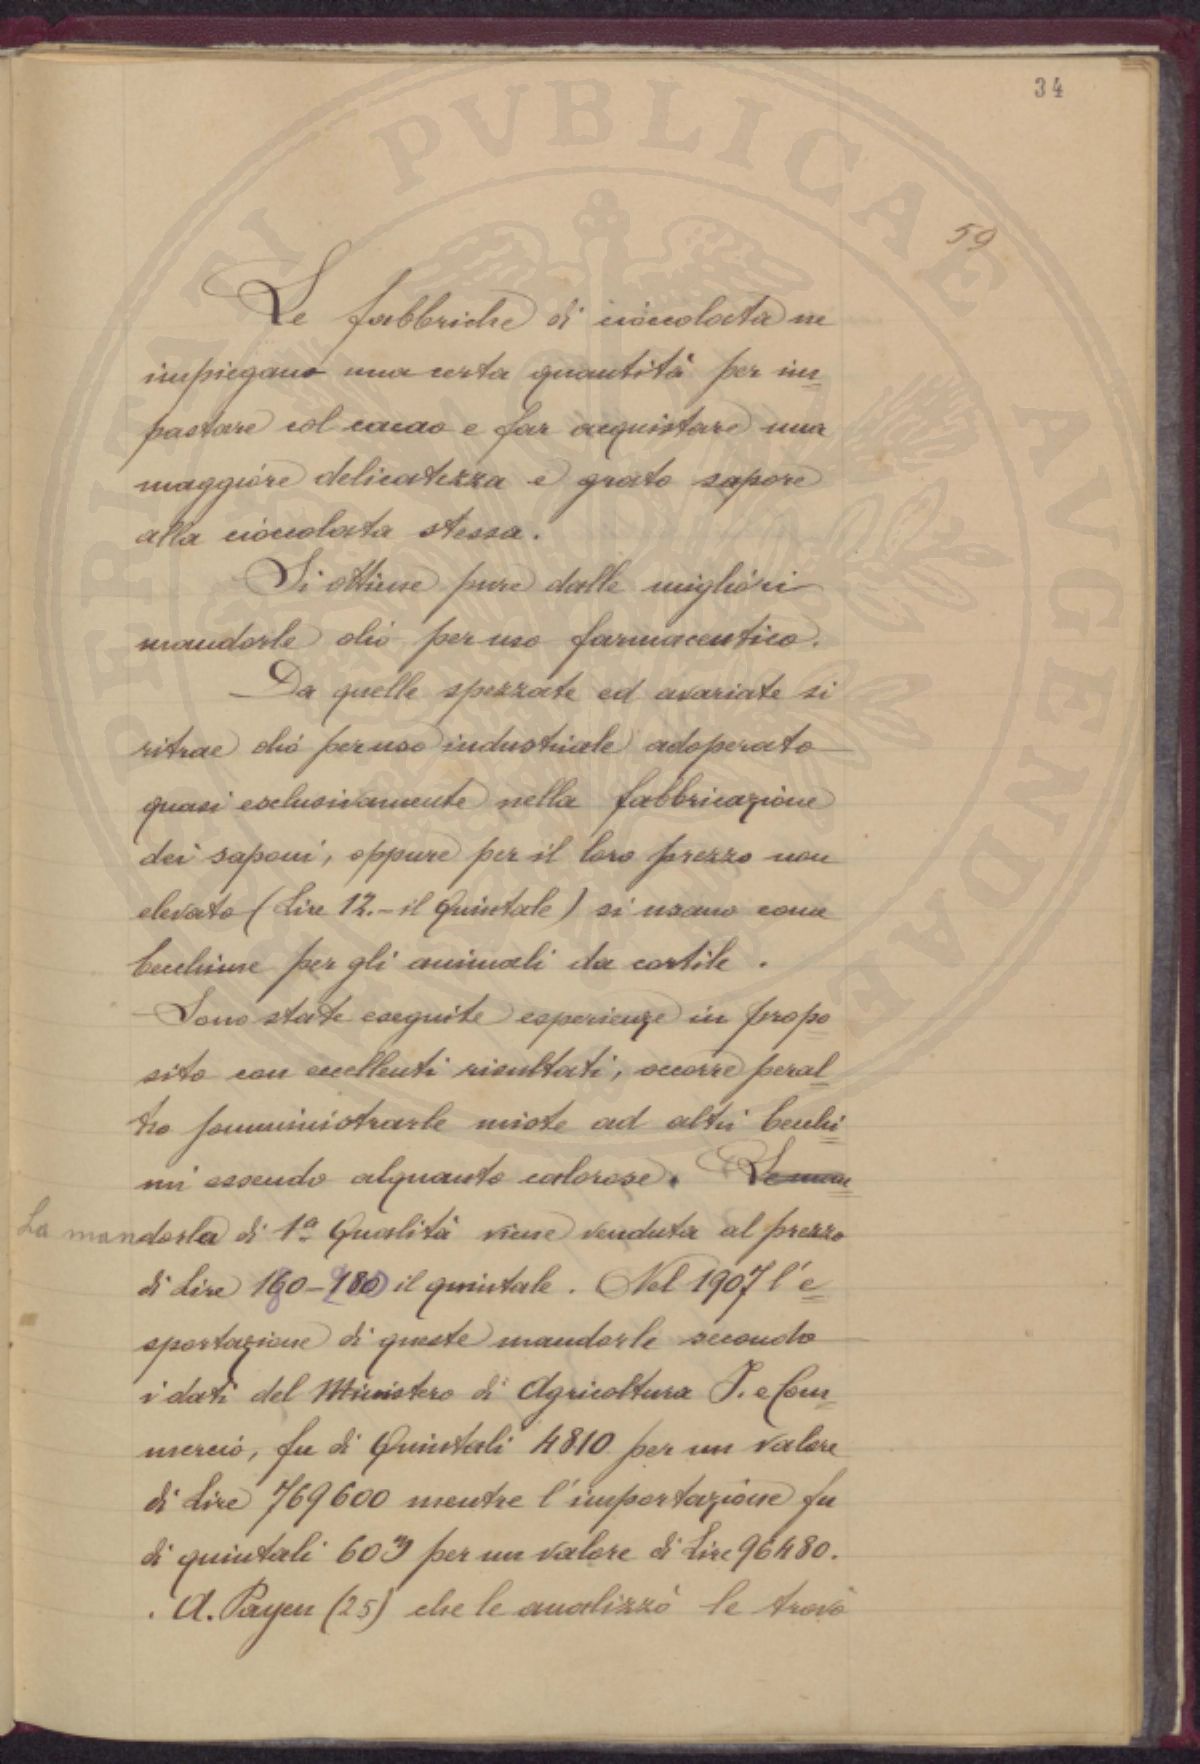 34
59
Le fabbriche di cioccolata ne
impiegano una certa quantità per im
pastare col cacao e far acquistare una
maggiore delicatezza e grato sapore
alla cioccolata stessa.
Si ottiene pure dalle migliori
mandorle olio per uso farmaceutico.
Da quelle spezzate ed avariate si
ritrae olio per uso industriale adoperato
quasi esclusivamente nella fabbricazione
dei saponi, oppure per il loro prezzo non
elevato (Lire 12.- il Quintale) si usano come
becchime per gli animali da cortile.
Sono state eseguite esperienze in propo
sito con eccellenti risultati, occorre peral
tro somministrarle miste ad altri becchi
mi essendo alquanto calorose. Le man
La mandorla di 1a Qualità viene venduta al prezzo
di Lire 160-180 il quintale. Nel 1907 l'e
sportazione di queste mandorle secondo
i dati del Ministero di Agricoltura I. e Com
mercio, fu di Quintali 4810 per un valore
di Lire 769600 mentre l'importazione fu
di quintali 603 per un valore di Lire 96480.
A. Payen (25) che le analizzò le trovò
PVBLICAE AVGENDAE